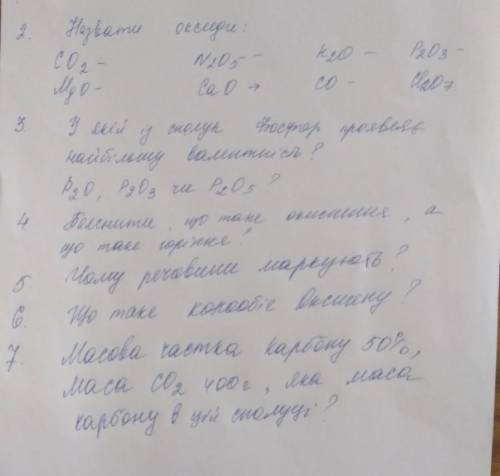 2. Назвати оксиди:
CO2 – N2O5 – K2O – P2O3 –
MgO – CaO → CO – Cl2O7
3. У якій із сполук Фосфор проявляє
найбільшу валентність?
P2O, P2O3 чи P2O5?
4 Пояснити, що таке окиснення, а
що таке горіння?
5. Чому речовини маркують?
6. Що таке колообіг Оксигену?
7. Масова частка Карбону 50%,
маса CO2 400г, яка маса
Карбону в цій сполуці?